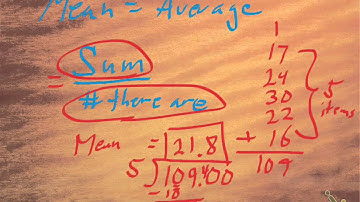 Mean = Average
= Sum
# there are
1
17
24
30
22
+ 16
109
5 items
Mean = 21.8
5 109.400
- 10